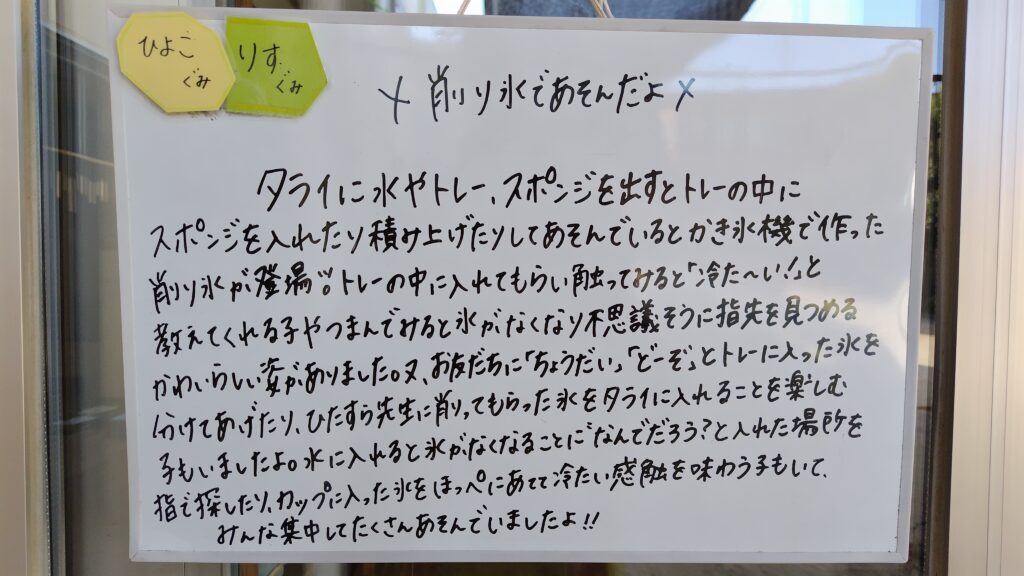 ひよこ
ぐみ
りす
ぐみ
削り氷であそんだよ
タライに水やトレー、スポンジを出すとトレーの中に
スポンジを入れたり積み上げたりしてあそんでいるとかき氷機で作った
削り氷が登場!!。トレーの中に入れてもらい触ってみると「冷た〜い!」と
教えてくれる子やつまんでみると氷がなくなり不思議そうに指先を見つめる
かわいらしい姿がありました。又、お友だちに「ちょうだい」「どーぞ」とトレーに入った氷を
分けてあげたり、ひたすら先生に削ってもらった氷をタライに入れることを楽しむ
子もいましたよ。水に入れると氷がなくなることに“なんでだろう?と入れた場所を
指で探したり、カップに入った氷をほっぺにあてて冷たい感触を味わう子もいて、
みんな集中してたくさんあそんでいましたよ!!